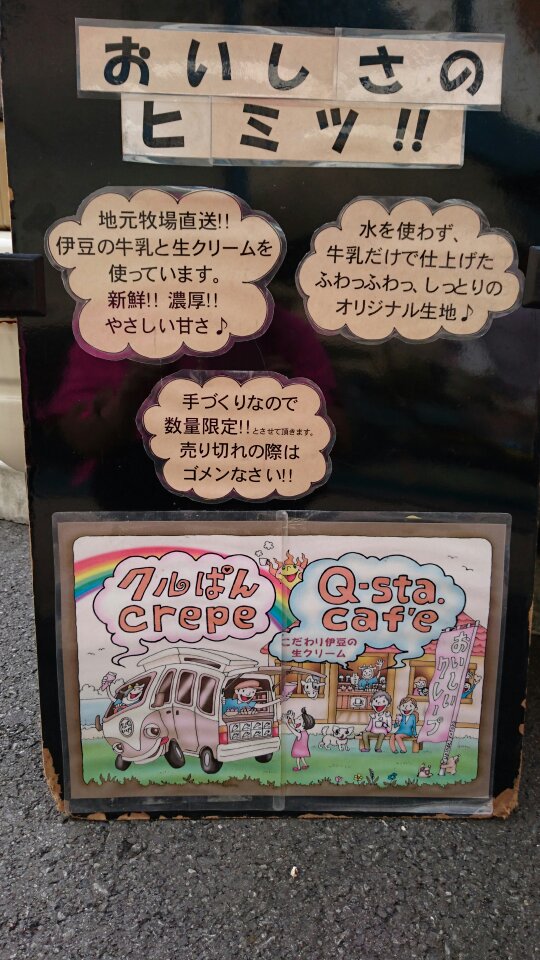 おいしさの
ヒミツ!!
地元牧場直送!!
伊豆の牛乳と生クリームを
使っています。
新鮮!! 濃厚!!
やさしい甘さ♪
水を使わず、
牛乳だけで仕上げた
ふわっふわっ、しっとりの
オリジナル生地♪
手づくりなので
数量限定!!とさせて頂きます。
売り切れの際は
ゴメンなさい!!
クルぱん
crepe
Q-sta.
caf'e
こだわり伊豆の
生クリーム
おいしいクレープ